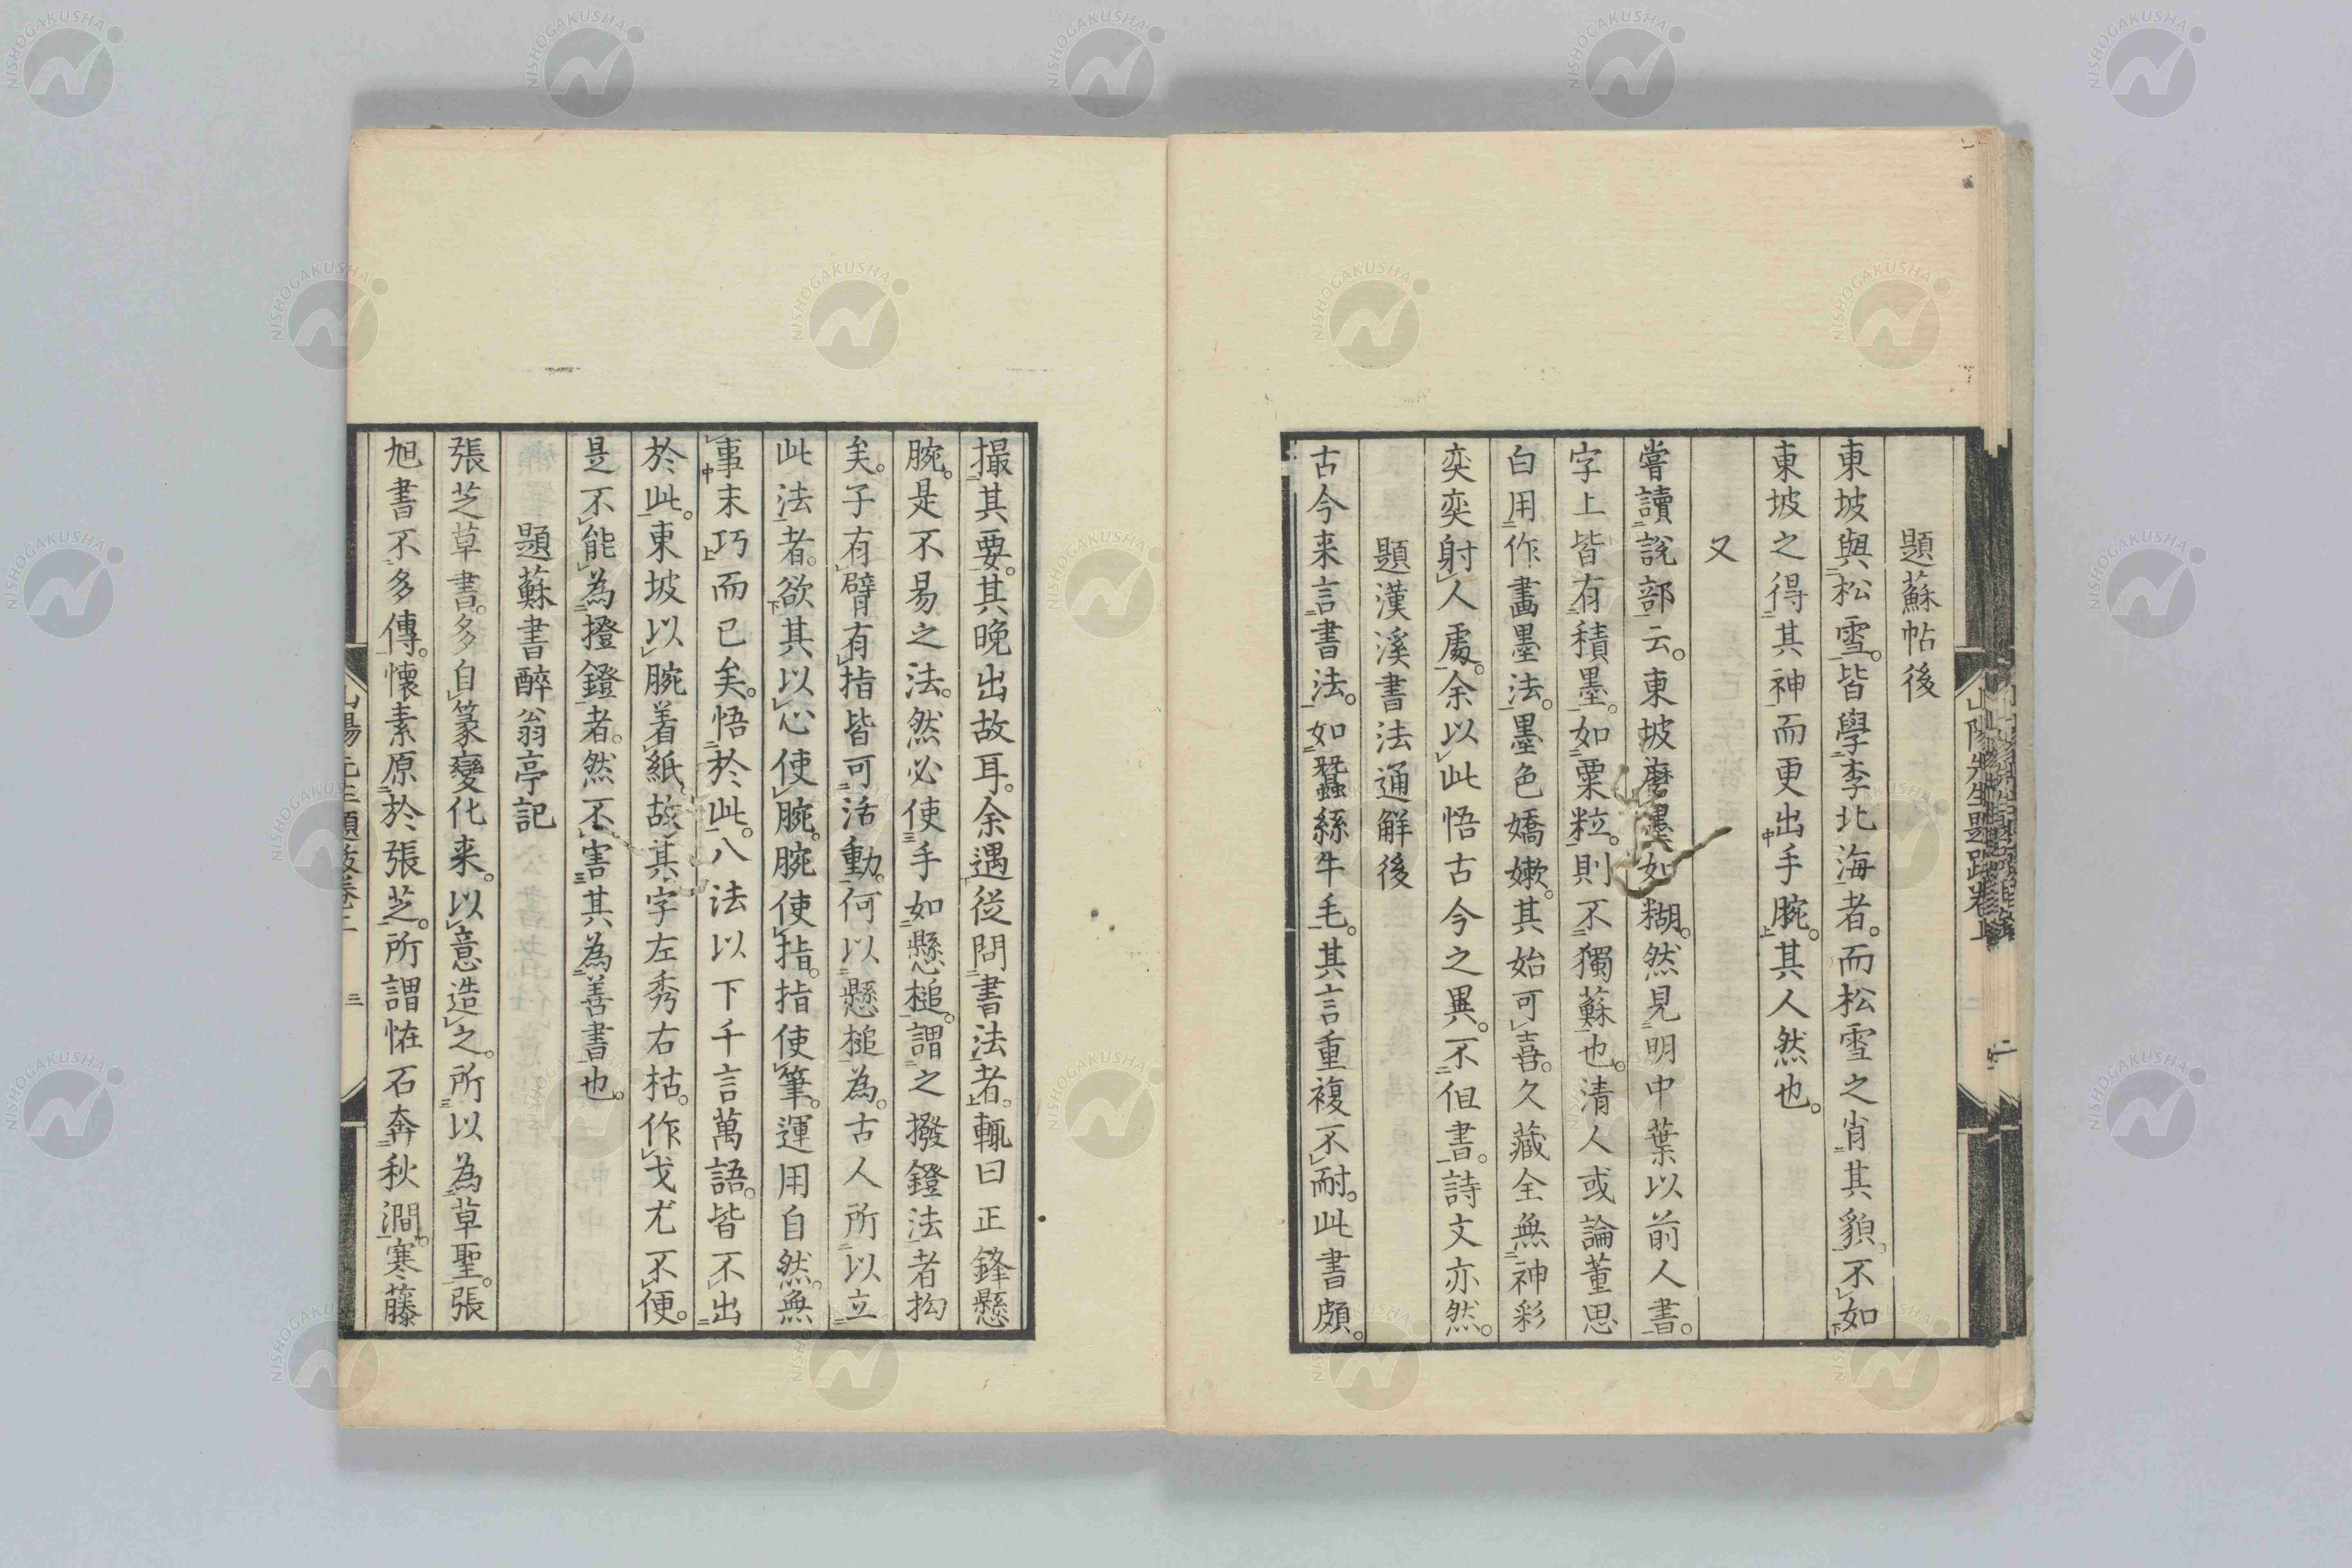 題蘇帖後
東坡與松雪。皆學李北海者。而松雪之肖其貌。不如
東坡之得其神而更出手腕。其人然也。
又
嘗讀說部云。東坡磨墨如糊。然見明中葉以前人書。
字上皆有積墨。如粟粒。則不獨蘇也。清人或論董思
白用作畫墨法。墨色嬌嫩。其始可喜。久藏全無神彩
奕奕射人處。余以此悟古今之異。不但書。詩文亦然。
題漢溪書法通解後
古今来言書法。如蠶絲牛毛。其言重複不耐。此書頗
撮其要。其晚出故耳。余遇從問書法者。輒曰正鋒懸
腕。是不易之法。然必使手如懸槌。謂之撥鐙法者拘
矣。子有臂有指皆可活動。何以懸槌為。古人所以立
此法者。欲其以心使腕。腕使指。指使筆。運用自然。無
事末巧而已矣。悟於此。八法以下千言萬語。皆不出
於此。東坡以腕着紙。故其字左秀右枯。作戈尤不便。
是不能為撥鐙者。然不害其為善書也。
題蘇書醉翁亭記
張芝草書。多自篆變化来。以意造之。所以為草聖。張
旭書不多傳。懷素原於張芝。所謂恠石奔秋澗。寒藤
山陽先生題跋卷上
三
NISHOGAKUSHA